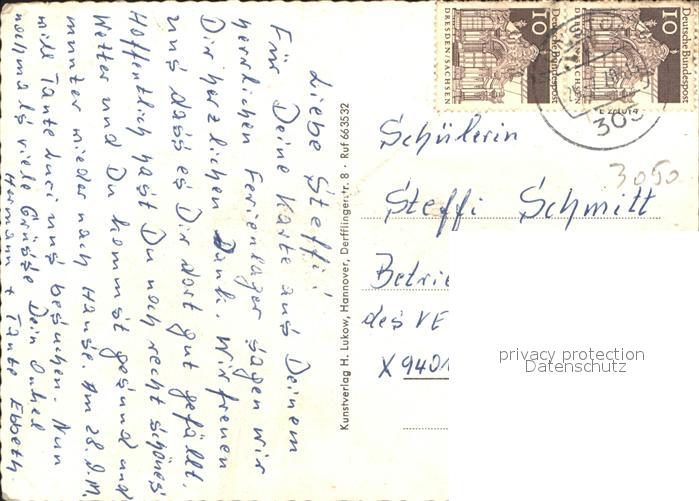 Liebe Steffi!
Für Deine Karte aus Deinem
herrlichen Ferienlager sagen wir
Dir herzlichen Dank. Wir freuen
uns dass es Dir dort gut gefällt.
Hoffentlich hast Du noch recht schönes
Wetter und Du kommst gesund und
munter wieder nach Hause. Am 28. d.M.
will Tante Luci uns besuchen. Nun
nochmals viele Grüsse Dein Onkel
Hermann + Tante Ebbeth.
Kunstverlag H. Lukow, Hannover, Derfflingerstr. 8 · Ruf 663532
10
Deutsche Bundespost
DRESDEN/SACHSEN
10
Deutsche Bundespost
DRESDEN/SACHSEN
305
3050
Schülerin
Steffi Schmitt
Betrie
des VE
X 9401
privacy protection
Datenschutz